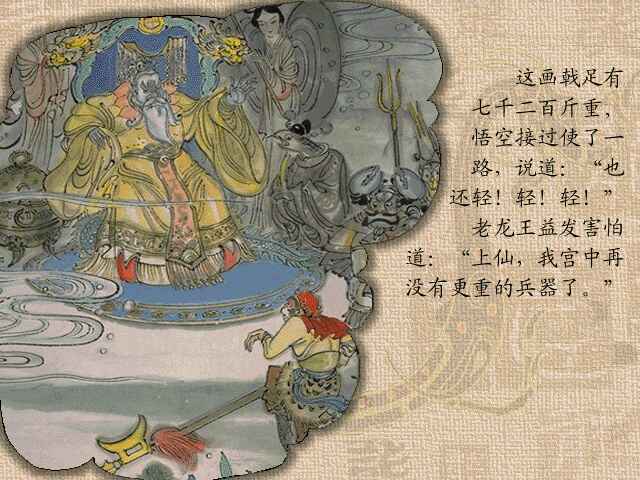 这画戟足有
七千二百斤重，
悟空接过使了一
路，说道：“也
还轻！轻！轻！”
老龙王益发害怕
道：“上仙，我宫中再
没有更重的兵器了。”